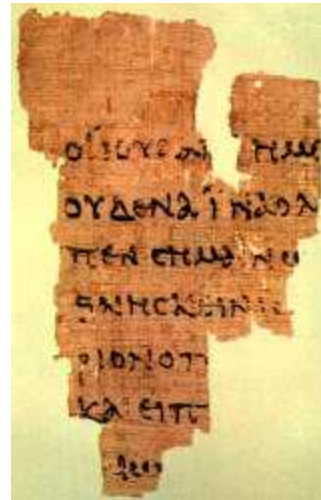 ΟΙ ΙΟΥΔΑΙ ΗΜ
ΟΥΔΕΝΑ ΪΝΑ Ο Λ
ΠΕΝ ϹΗΜΑΙΝΩ
ΘΝΗϹΚΕΙΝ ΙϹ
ΡΙΟΝ Ο Π
ΚΑΙ ΕΙΠ